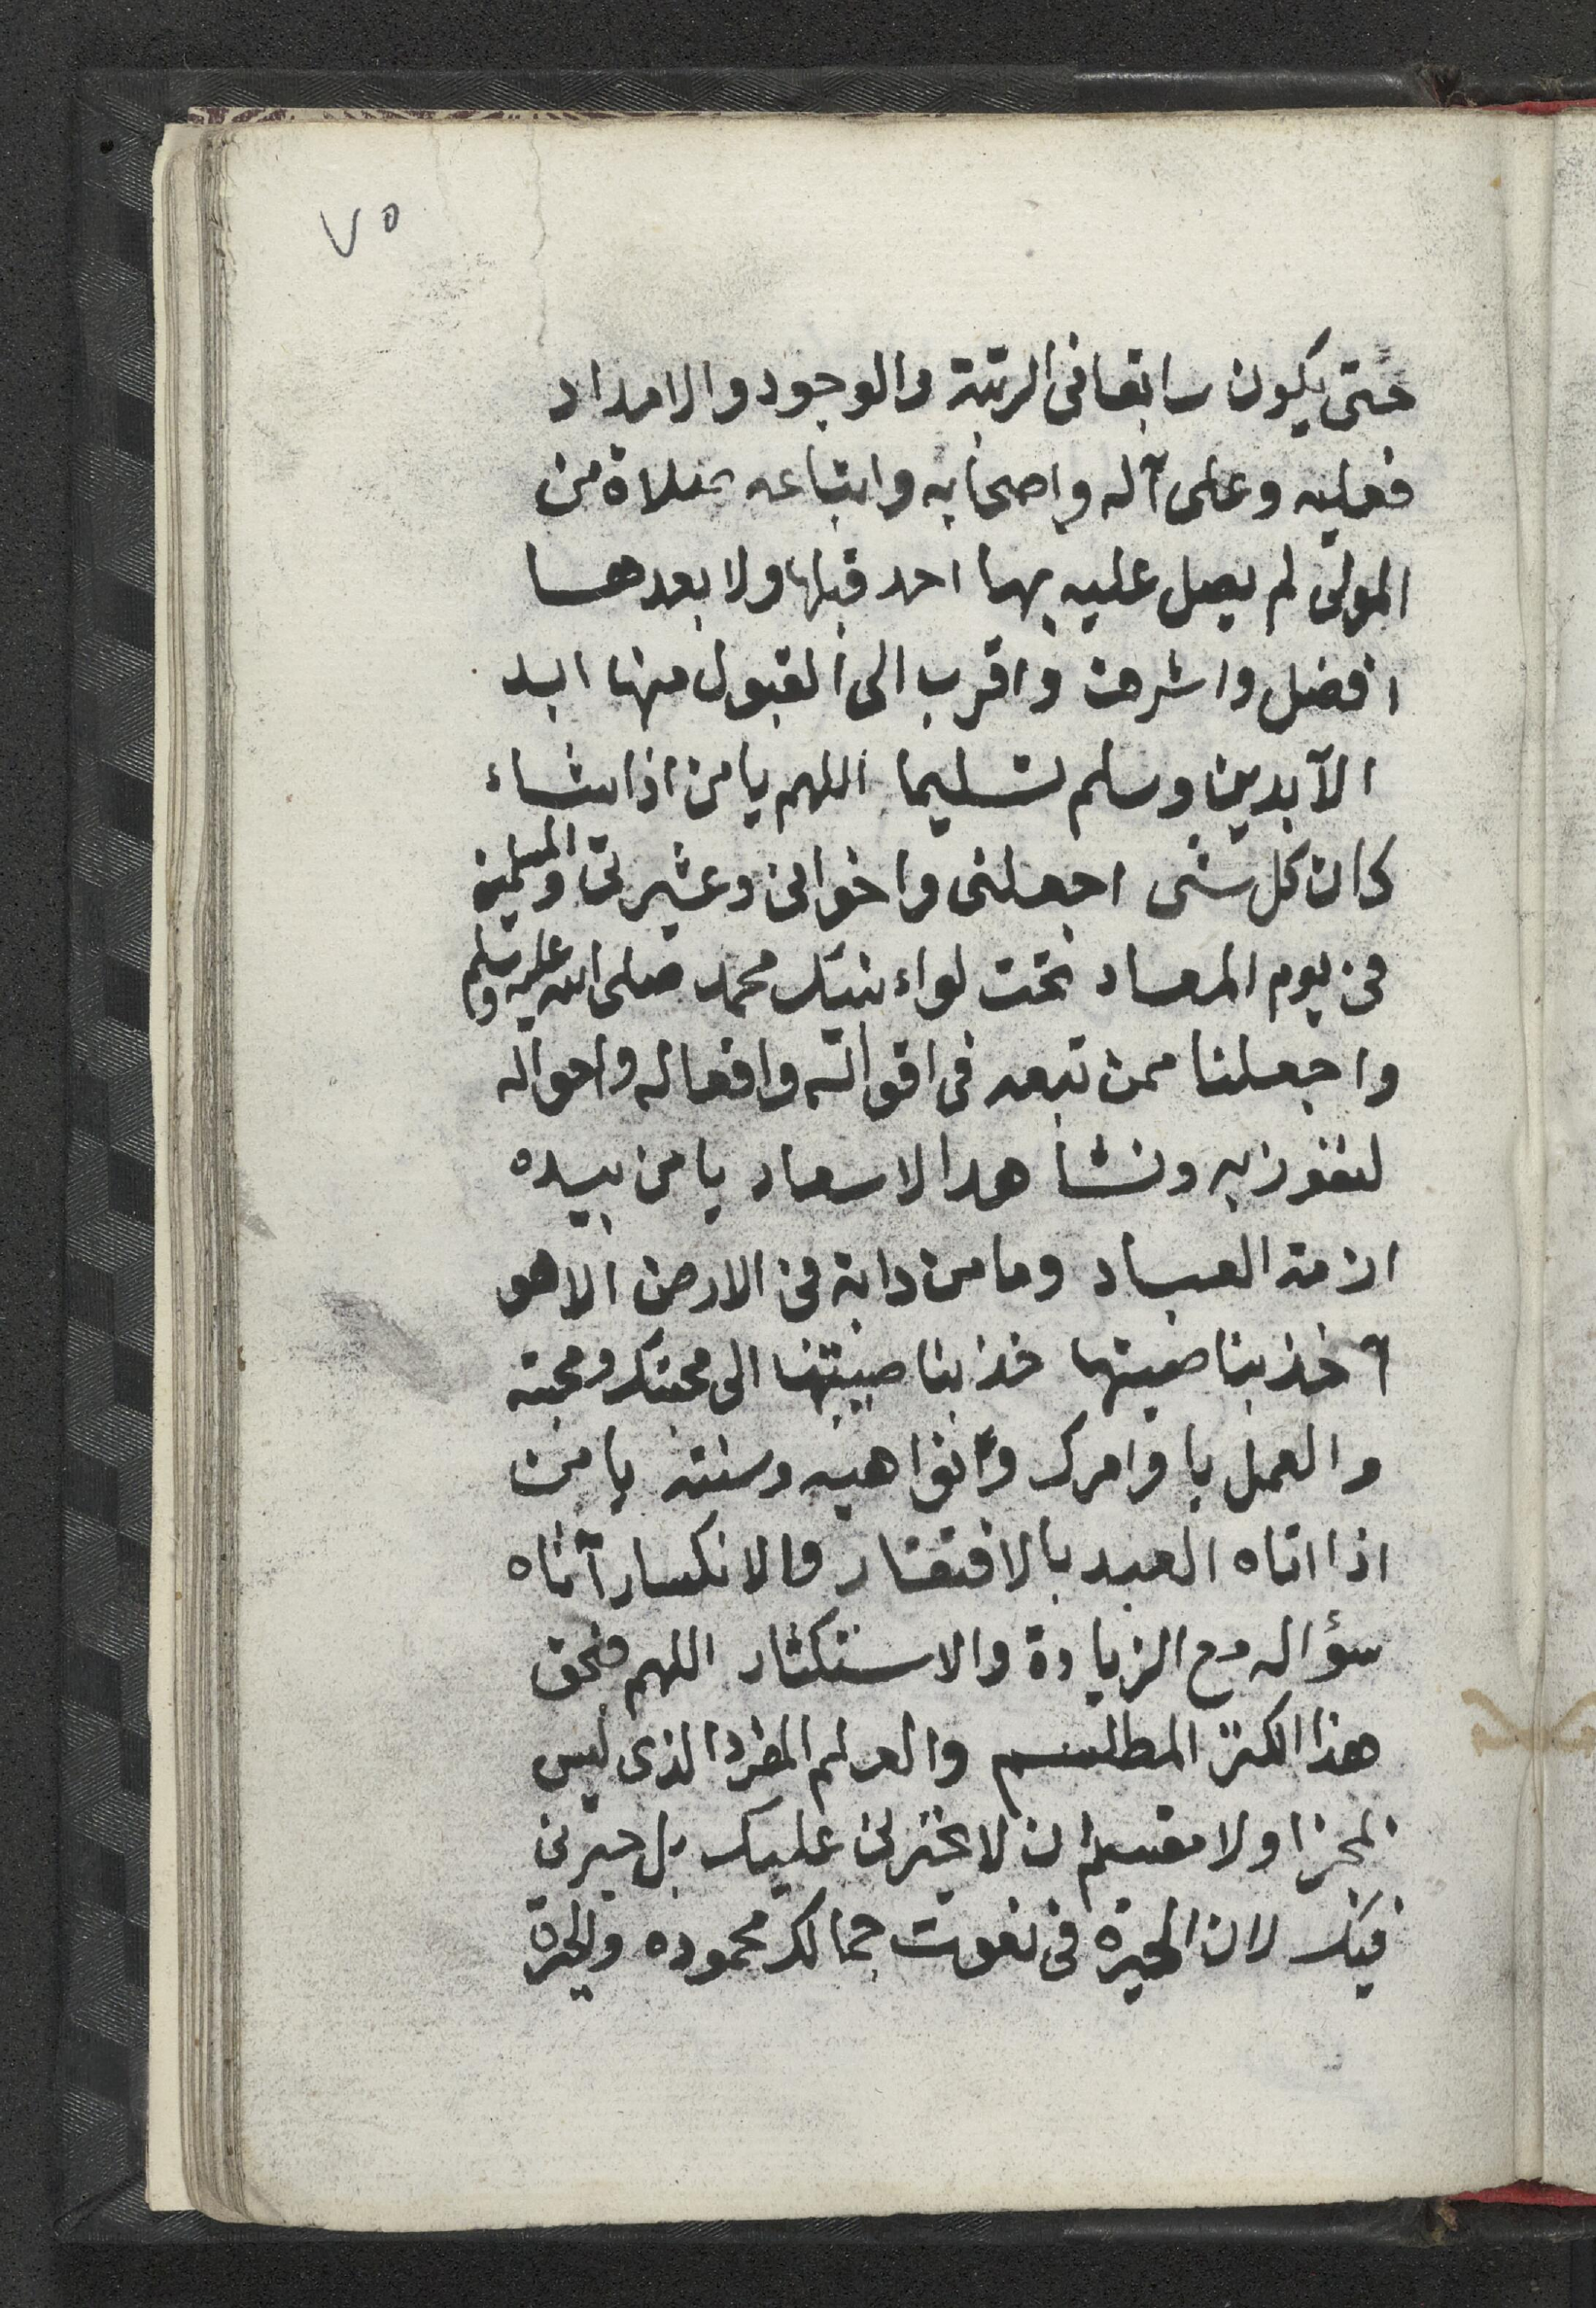 ٧٥
حتى يكون سابقا فى الرتبة والوجود والامداد
فعليه وعلى آله واصحابه واتباعه صلاة من
المولى لم يصل عليه بها احد قبلها ولا بعدها
افضل واشرف واقرب الى القبول منها ابد
الآبدين وسلم تسليما اللهم يا من اذا شاء
كان كل شى اجعلنى واخوانى وعشيرتى والمسلمين
فى يوم المعاد تحت لواء نبيك محمد صلى الله عليه وسلم
واجعلنا ممن تبعه فى اقواله وافعاله واحواله
لنفوز به ونشاهد الاسعاد يا من بيده
ازمة العباد وما من دابة فى الارض الا هو
آخذ بناصيتها خذ بناصيتها الى محبتك ومحبته
والعمل باوامرك ونواهيه وسنته يا من
اذا اتاه العبد بالافتقار والانكسار آتاه
سؤاله مع الزيادة والاستكثار اللهم فبحق
هذا الكنز المطلسم والعلم المفرد الذى ليس
بمجزا ولا مقسم ان لا تحيرنى عليك بل حيرنى
فيك لان الحيرة فى نعوت جمالك محموده والحيرة